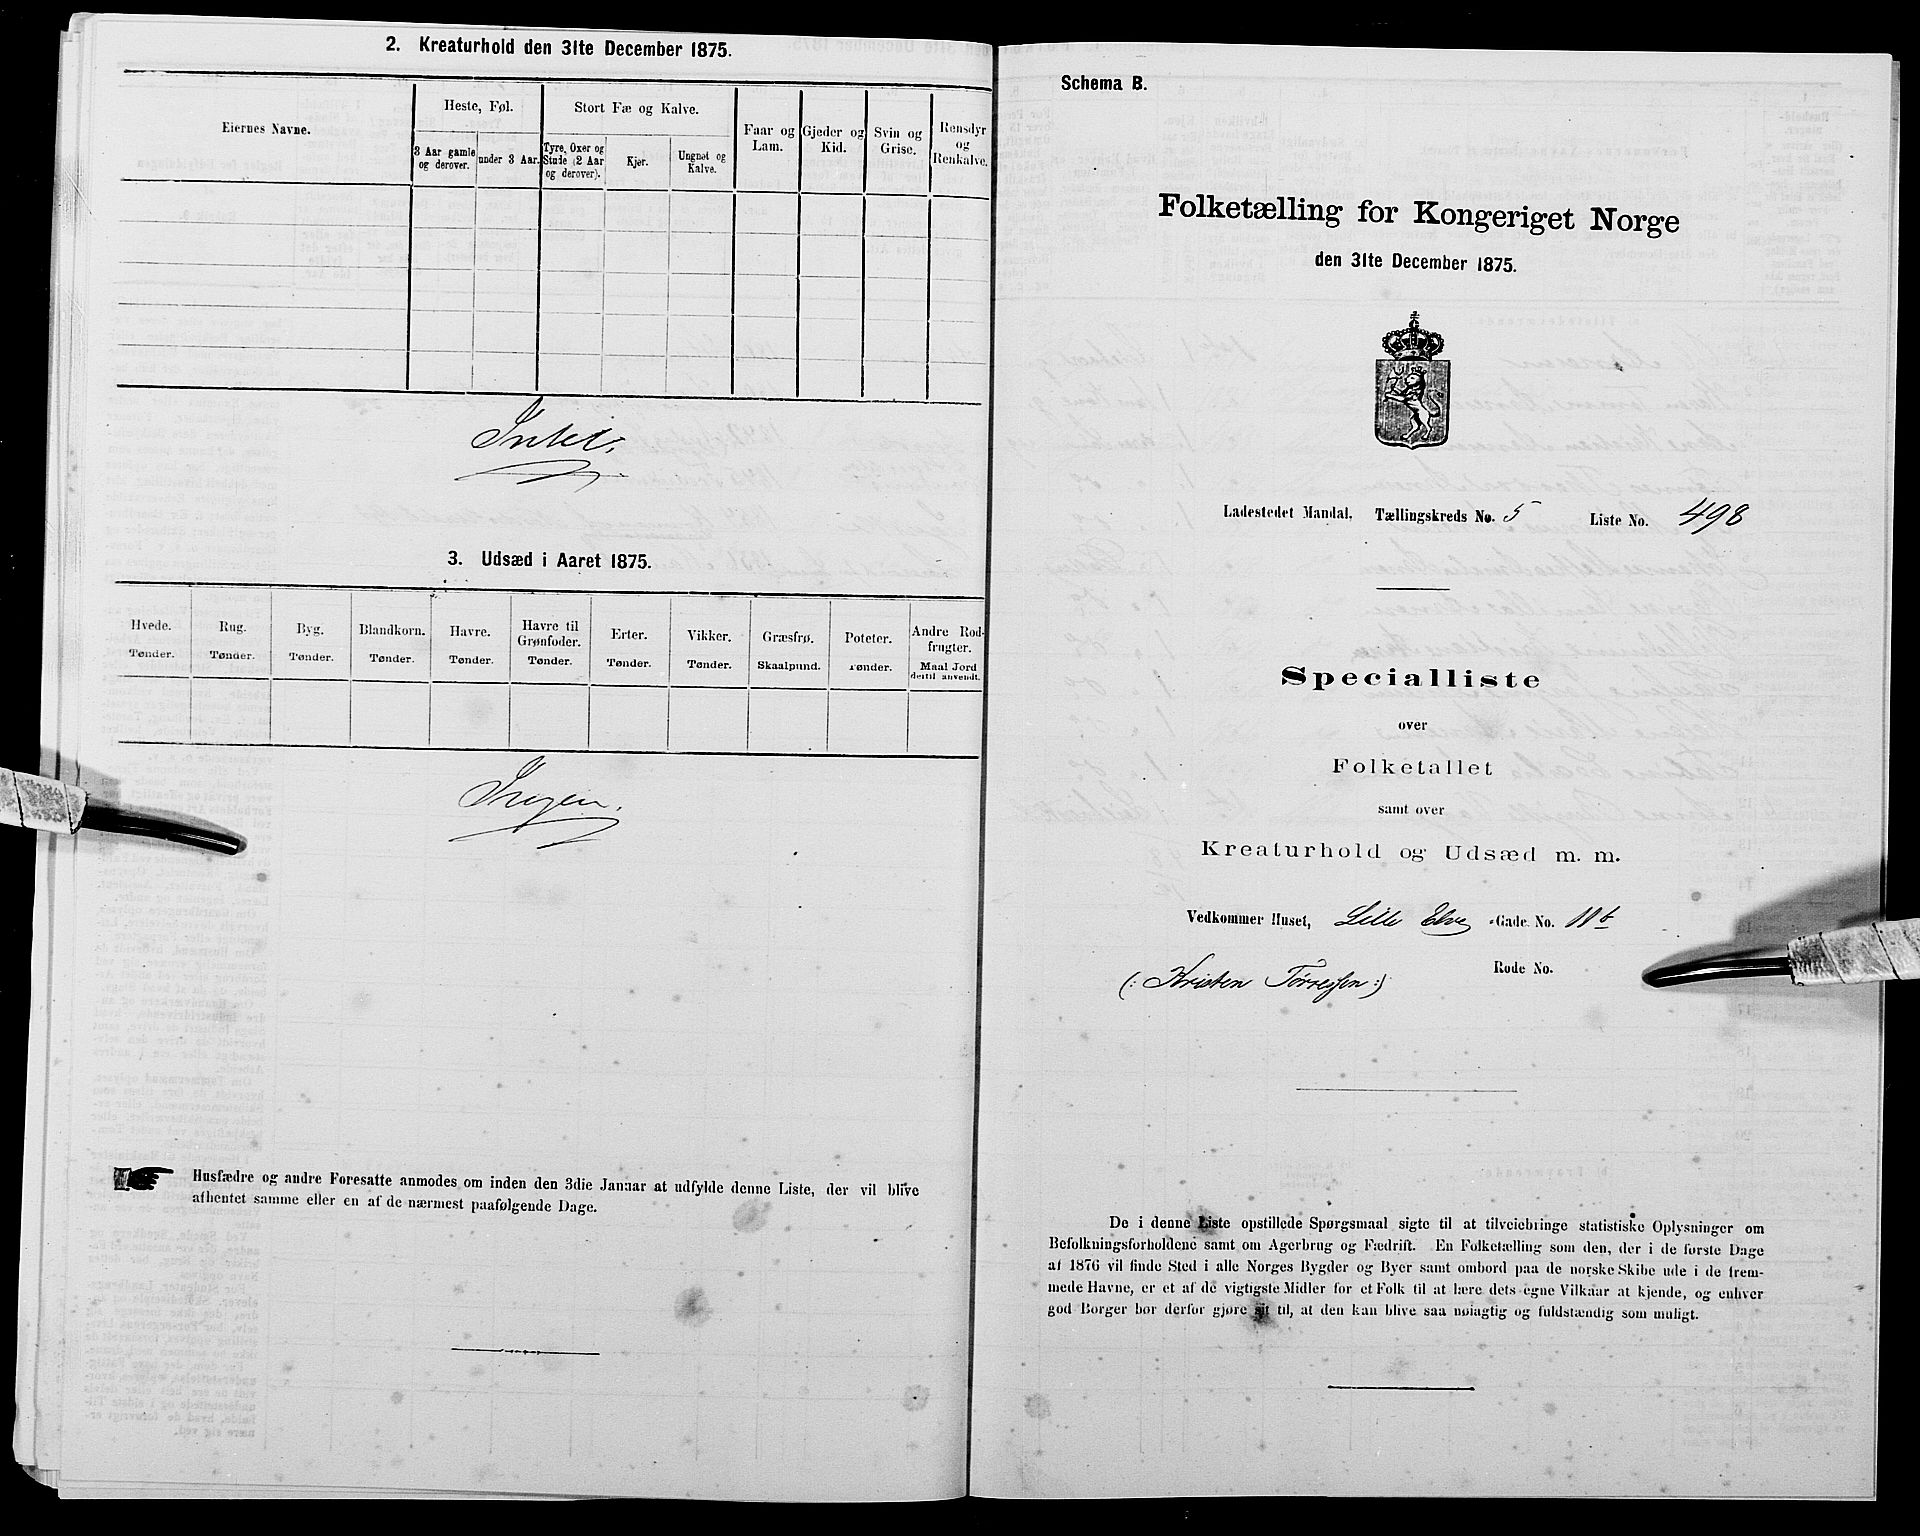 2. Kreaturhold den 31te December 1875.
Eiernes Navne.
Heste, Føl.
3 Aar gamle og derover.
under 3 Aar.
Stort Fæ og Kalve.
Tyre, Oxer og Stude (2 Aar og derover).
Kjør.
Ungnøt og Kalve.
Faar og Lam.
Gjeder og Kid.
Svin og Grise.
Rensdyr og Renkalve.
Intet.
3. Udsæd i Aaret 1875.
Hvede. Tønder.
Rug. Tønder.
Byg. Tønder.
Blandkorn. Tønder.
Havre. Tønder.
Havre til Grønfoder. Tønder.
Erter. Tønder.
Vikker. Tønder.
Græsfrø. Skaalpund.
Poteter. Tønder.
Andre Rodfrugter. Maal Jord dertil anvendt.
Ingen.
Husfædre og andre Foresatte anmodes om inden den 3die Januar at udfylde denne Liste, der vil blive
afhentet samme eller en af de nærmest paafølgende Dage.
Schema B.
Folketælling for Kongeriget Norge
den 31te December 1875.
Ladestedet Mandal. Tællingskreds No. 5 Liste No. 498
Specialliste
over
Folketallet
samt over
Kreaturhold og Udsæd m. m.
Vedkommer Huset, Lille Elve-Gade. No. 11b
Rode No.
(: Kristen Tørressen :)
De i denne Liste opstillede Spørgsmaal sigte til at tilveiebringe statistiske Oplysninger om
Befolkningsforholdene samt om Agerbrug og Fædrift. En Folketælling som den, der i de første Dage
af 1876 vil finde Sted i alle Norges Bygder og Byer samt ombord paa de norske Skibe ude i de frem-
mede Havne, er et af de vigtigste Midler for et Folk til at lære dets egne Vilkaar at kjende, og enhver
god Borger bør derfor gjøre sit til, at den kan blive saa nøiagtig og fuldstændig som muligt.